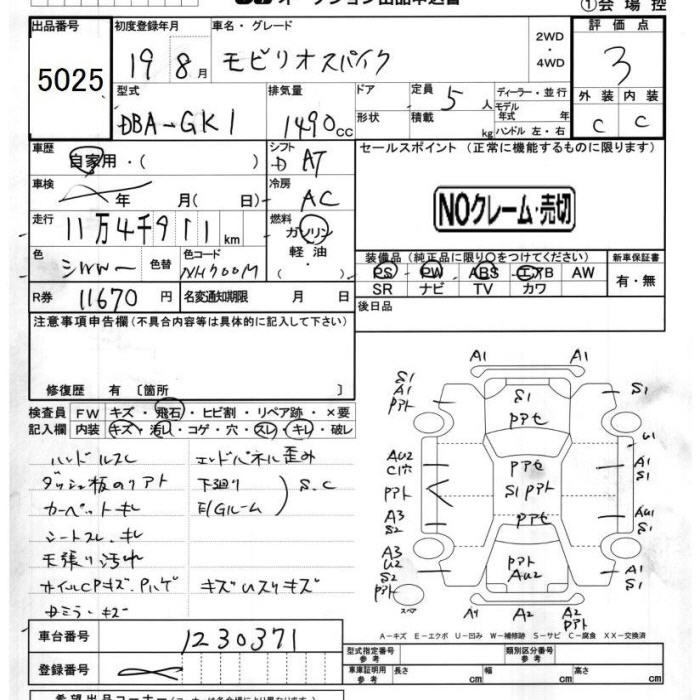 オークション出品申込書
①会場控
出品番号 初度登録年月 車名・グレード 2WD ・ 4WD 評価点
5025 19 8月 モビリオスパイク 3
型式 排気量 ドア 定員 5人 ディーラー・並行 外装 内装
DBA-GK1 1490cc 形状 積載 kg モデル年式 年 ハンドル 左・右 C C
車歴 自家用・( ) シフト D AT セールスポイント (正常に機能するものに限ります)
車検 年 月( 日) 冷房 AC NOクレーム・売切
走行 11万4千911km 燃料 ガソリン 軽油 ( )
色 シルバー 色替 色コード NH700M 装備品(純正品に限り○をつけてください) 新車保証書
PS PW ABS エアB AW 有・無
SR ナビ TV カワ
R券 11670円 名変通知期限 月 日 後日品
注意事項申告欄(不具合内容等は具体的に記入して下さい)
修復歴 有 〔箇所 〕
検査員 FW キズ・飛石・ヒビ割・リペア跡・×要
記入欄 内装 キズ・汚レ・コゲ・穴・スレ・キレ・破レ
ハンドルスレ エンドパネル歪み
ダッシュ板のリアト 下廻り S.C
カーペットキレ E/Gルーム
シートスレ.キレ
天張り汚れ
ホイルCPキズ.Pハゲ キズいスリキズ
Rミラーキズ
A1 A1
S1 A1 アアト S1 S1
アアセ
U1
AU2 C1穴 アアセ A1 S1
アアト S1アアト
A3 S2 アアセ AU1 S1
A3 U2 S2 アアト AU2 A1 S1
アアト
スペア A4 A2 A2 アアト
A-キズ E-エクボ U-凹み W-補修跡 S-サビ C-腐食 XX-交換済
車台番号 1230371 型式指定番号 参考 類別区分番号 参考
登録番号 車庫証明用 参考 長さ cm 幅 cm 高さ cm
希望出品コーナー